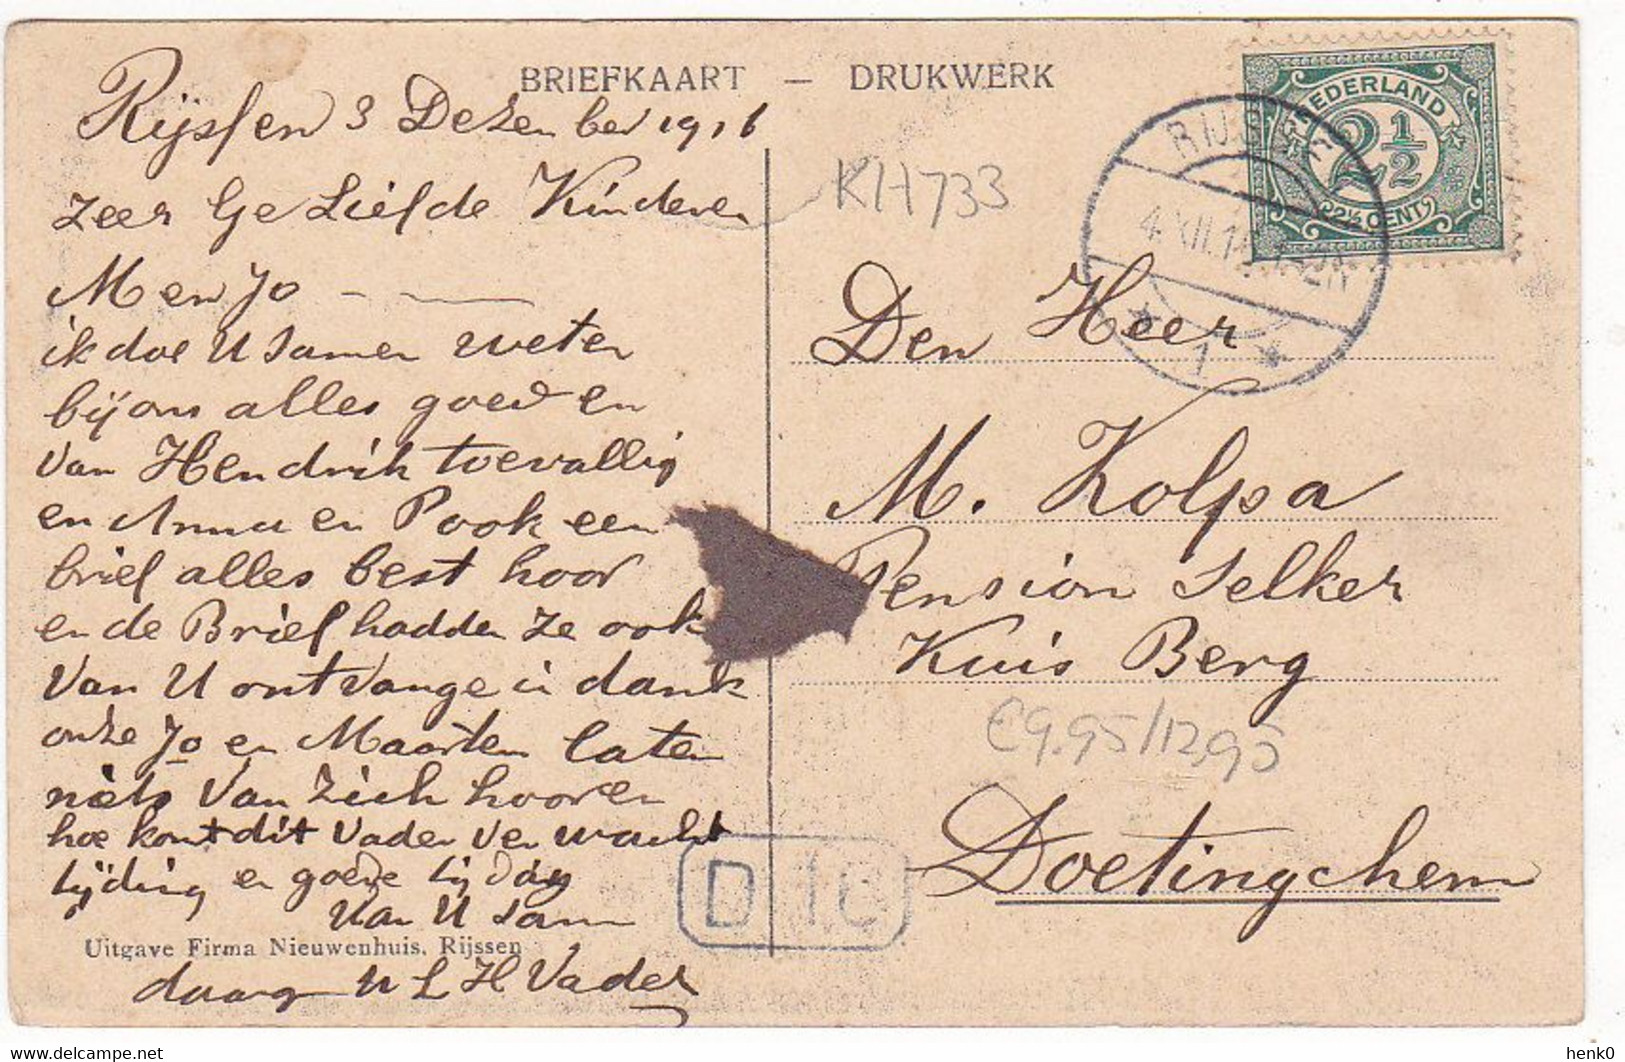 BRIEFKAART — DRUKWERK
Rijssen 3 Dezember 1916
zeer Ge Liefde Kinderen
M en Jo
ik doe U samen weten
bij ons alles goed en
van Hendrik toevallig
en Anna en P ook een
brief alles best hoor
en de Brief hadden ze ook
van U ontvange in dank
onze Jo en Maarten laten
niets van zich hooren
hoe komt dit vader verwacht
tijding en goede tijding
van U sam
Uitgave Firma Nieuwenhuis, Rijssen
daag U L H Vader
KH733
NEDERLAND
2½
2½ CENT
RIJSSEN
4.XII.16
1
Den Heer
M. Kolpa
Pension Selker
Kuis Berg
€9.95/12,95
Doetingchem
D
henk0